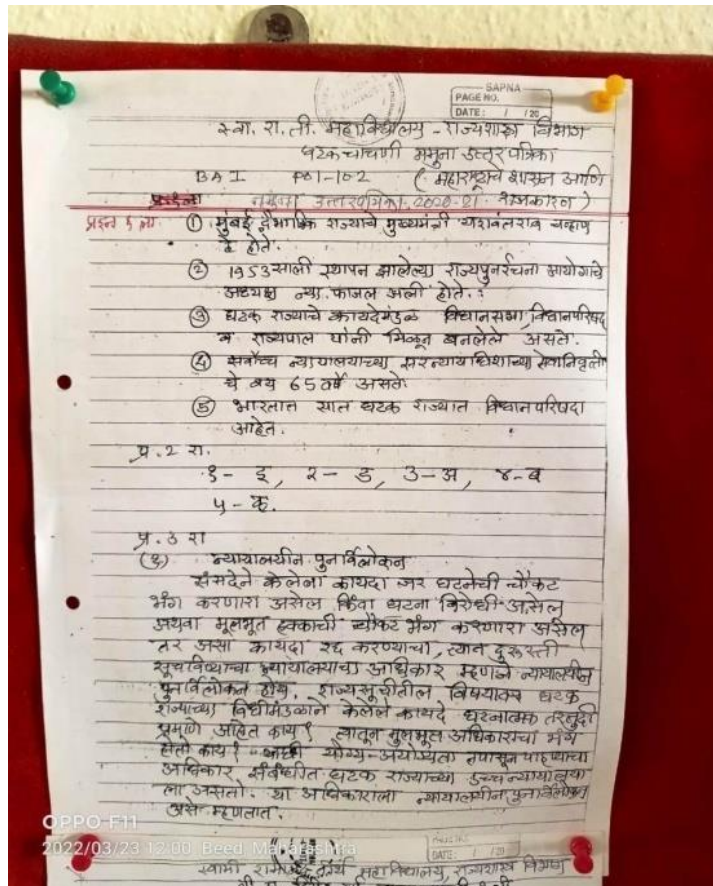 SAPNA
PAGE NO.
DATE: / / 20
स्वा. रा. ती. महाविद्यालय - राज्यशास्त्र विभाग
घटक चाचणी नमुना उत्तरपत्रिका
BA I POl-102 ( महाराष्ट्राचे शासन आणि
उत्तरपत्रिका 2020-21 राजकारण )
① मुंबई द्वैभाषिक राज्याचे मुख्यमंत्री यशवंतराव चव्हाण
हे होते.
② 1953 साली स्थापन झालेल्या राज्यपुनर्रचना आयोगाचे
अध्यक्ष न्या. फाजल अली होते.
③ घटक राज्याचे कायदेमंडळ विधानसभा, विधानपरिषद
व राज्यपाल यांनी मिळून बनलेले असते.
④ सर्वोच्च न्यायालयाच्या सरन्यायाधिशाच्या सेवानिवृत्ती
चे वय 65 वर्षे असते.
⑤ भारतात सात घटक राज्यात विधानपरिषदा
आहेत.
प्र. 2 रा.
१- इ, २- ड, ३-अ, ४-ब
५ - क.
प्र. ३ रा
(१) न्यायालयीन पुनर्विलोकन
संसदेने केलेला कायदा जर घटनेची चौकट
भंग करणारा असेल किंवा घटना विरोधी असेल
अथवा मूलभूत हक्काची चौकट भंग करणारा असेल
तर असा कायदा रद्द करण्याचा, त्यात दुरूस्ती
सूचविण्याचा न्यायालयाचा अधिकार म्हणजे न्यायालयीन
पुनर्विलोकन होय. राज्यसूचीतील विषयावर घटक
राज्याच्या विधीमंडळाने केलेले कायदे घटनात्मक तरतुदी
प्रमाणे आहेत काय? त्यातून मुलभूत अधिकाराचा भंग
होतो काय? योग्य-अयोग्यता तपासून पाहण्याचा
अधिकार संबंधीत घटक राज्याच्या उच्च न्यायालया
ला असतो. या अधिकाराला न्यायालयीन पुनर्विलोकन
असे म्हणतात.
OPPO F11
2022/03/23 12:00 Beed, Maharashtra
DATE: / / 20
स्वामी रामानंद तीर्थ महाविद्यालय, राज्यशास्त्र विभाग